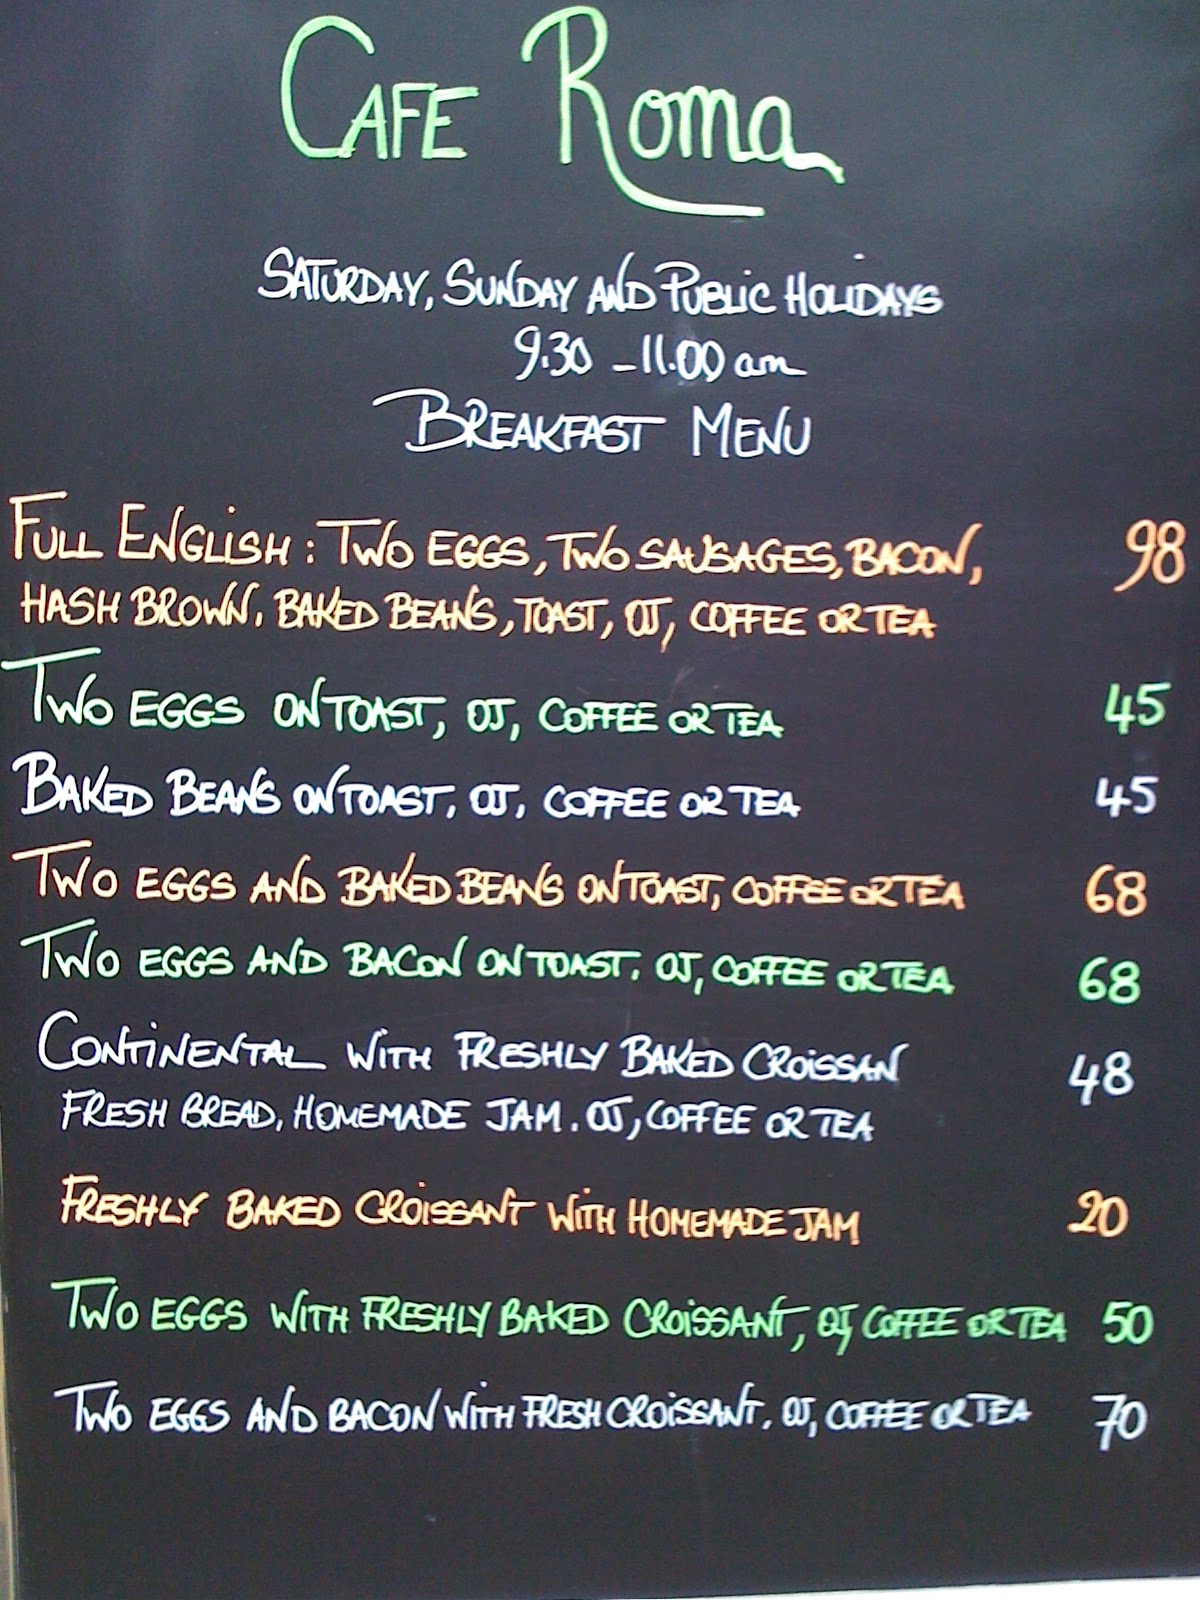 CAFE Roma
SATURDAY, SUNDAY AND PUBLIC HOLIDAYS
9.30 - 11.00 am
BREAKFAST MENU
FULL ENGLISH : TWO EGGS, TWO SAUSAGES, BACON, 98
HASH BROWN, BAKED BEANS, TOAST, OJ, COFFEE OR TEA
TWO EGGS ON TOAST, OJ, COFFEE OR TEA 45
BAKED BEANS ON TOAST, OJ, COFFEE OR TEA 45
TWO EGGS AND BAKED BEANS ON TOAST, COFFEE OR TEA 68
TWO EGGS AND BACON ON TOAST, OJ, COFFEE OR TEA 68
CONTINENTAL WITH FRESHLY BAKED CROISSAN 48
FRESH BREAD, HOMEMADE JAM. OJ, COFFEE OR TEA
FRESHLY BAKED CROISSANT WITH HOMEMADE JAM 20
TWO EGGS WITH FRESHLY BAKED CROISSANT, OJ, COFFEE OR TEA 50
TWO EGGS AND BACON WITH FRESH CROISSANT, OJ, COFFEE OR TEA 70